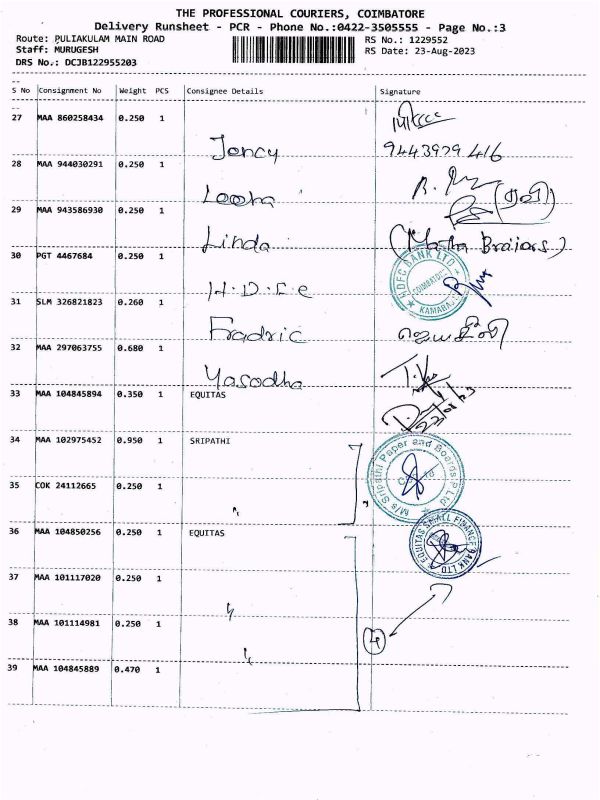 THE PROFESSIONAL COURIERS, COIMBATORE
Delivery Runsheet - PCR - Phone No.:0422-3505555 - Page No.:3
Route: PULIAKULAM MAIN ROAD RS No.: 1229552
Staff: MURUGESH RS Date: 23-Aug-2023
DRS No.: DCJB122955203
S No Consignment No Weight PCS Consignee Details Signature
27 MAA 860258434 0.250 1
Joncy 9443979416
28 MAA 944030291 0.250 1
Leena
29 MAA 943586930 0.250 1
Linda
30 PGT 4467684 0.250 1
HDFC BANK LTD COIMBATORE
H.D.F.C
31 SLM 326821823 0.260 1
Fradric
32 MAA 297063755 0.680 1
Yasodha
33 MAA 104845894 0.350 1 EQUITAS
23/08/23
34 MAA 102975452 0.950 1 SRIPATHI
M/s Sripathi Paper and Boards P Ltd
35 COK 24112665 0.250 1 "
36 MAA 104850256 0.250 1 EQUITAS
EQUITAS SMALL FINANCE BANK LTD
37 MAA 101117020 0.250 1 "
38 MAA 101114981 0.250 1 "
4
39 MAA 104845889 0.470 1